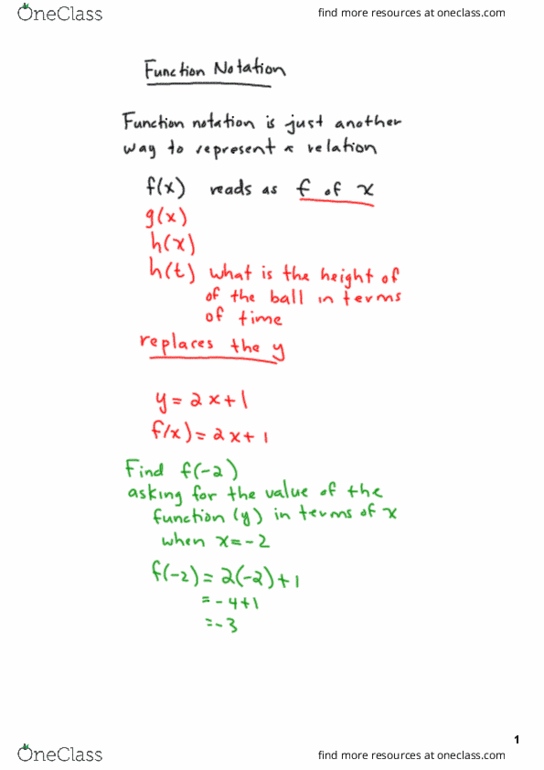 OneClass
find more resources at oneclass.com
Function Notation
Function notation is just another
way to represent a relation
f(x) reads as f of x
g(x)
h(x)
h(t) what is the height of
of the ball in terms
of time
replaces the y
y = 2x+1
f(x) = 2x+1
Find f(-2)
asking for the value of the
function (y) in terms of x
when x=-2
f(-2) = 2(-2)+1
= -4+1
=-3
1
OneClass
find more resources at oneclass.com